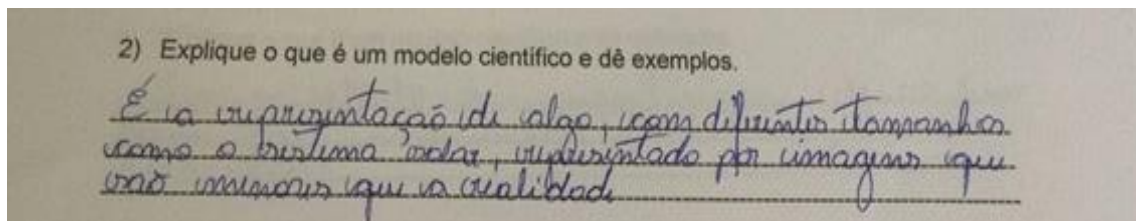 2) Explique o que é um modelo científico e dê exemplos.
É a representação de algo, com diferentes tamanhos
como o sistema solar, representado por imagens que
são menores que a realidade